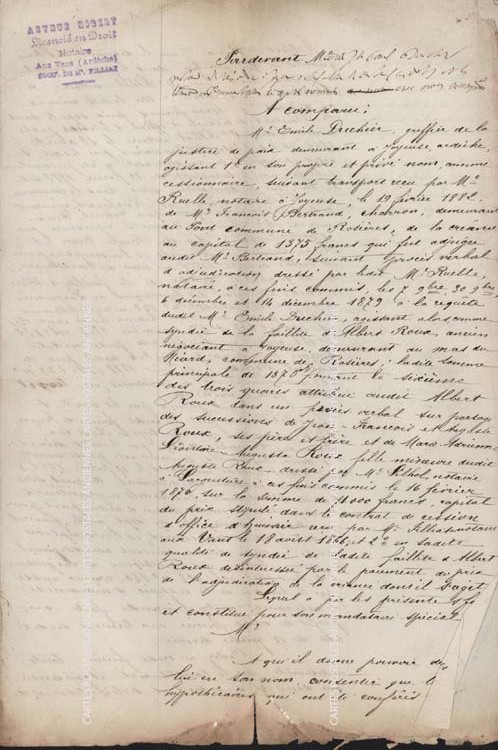 ARTHUR ROBERT
Licencié en Droit
Notaire
Aux Vans (Ardèche)
SUCC. DE Mᵉ. FILLIAT
Pardevant
A comparu:
Mʳ. Emile Duchier, greffier de la
justice de paix demeurant à Joyeuse, ardèche,
agissant 1° en son propre et privé nom, comme
cessionnaire, suivant transport reçu par Mᵉ
Ruelle, notaire à Joyeuse, le 19 février 1882.
de Mʳ François Bertrand, charron, demeurant
au Pont commune de Rosières, de la créance
au capital de 1375 francs qui fut adjugée
audit Mʳ. Bertrand, suivant procès verbal
d'adjudication dressé par ledit Mᵉ Ruelle,
notaire, à ces fins commis, les 7 9bre, 30 9bre
6 décembre et 14 décembre 1879 à la requête
dudit Mʳ Emile Duchier, agissant alors comme
syndic de la faillite d'Albert Roux, ancien
négociant à Joyeuse, demeurant au mas du
commune de Rosières; ladite somme
principale de formant le sixième
des trois quarts attribué audit Albert
Roux dans un procès verbal sur partage
des sucessions de Jean-François et Auguste
Roux, ses père et frère et de Marie Adrienne
Augusta Roux fille mineure dudit
Auguste Roux dressé par Mᵉ notaire
à Largentière à ces fins commis le 16 février
1870 sur la somme de francs, capital
du prix stipulé dans le contrat de cession
d'office d'huissier reçu par Mᵉ Filliat notaire
aux Vans le 18 août 1866, et 2° en sadite
qualité de syndic de ladite faillite d'Albert
Roux désintéressée par le paiement du prix
de l'adjudication de la créance dont il s'agit
Lequel a par les présente fait
et constitué pour son mandataire spécial
Mʳ
A qui il donne pouvoir de,
lui en son nom consentir que les
hypothécaires, qui ont été conférés